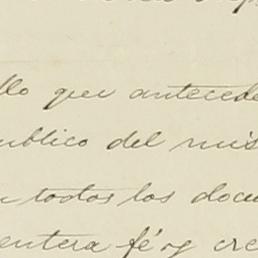 llo que antecede
ublico del mis
todos los docu
entera fé y cre